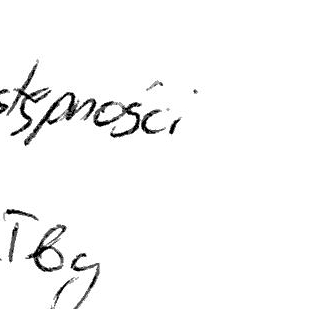 stępności
TBy